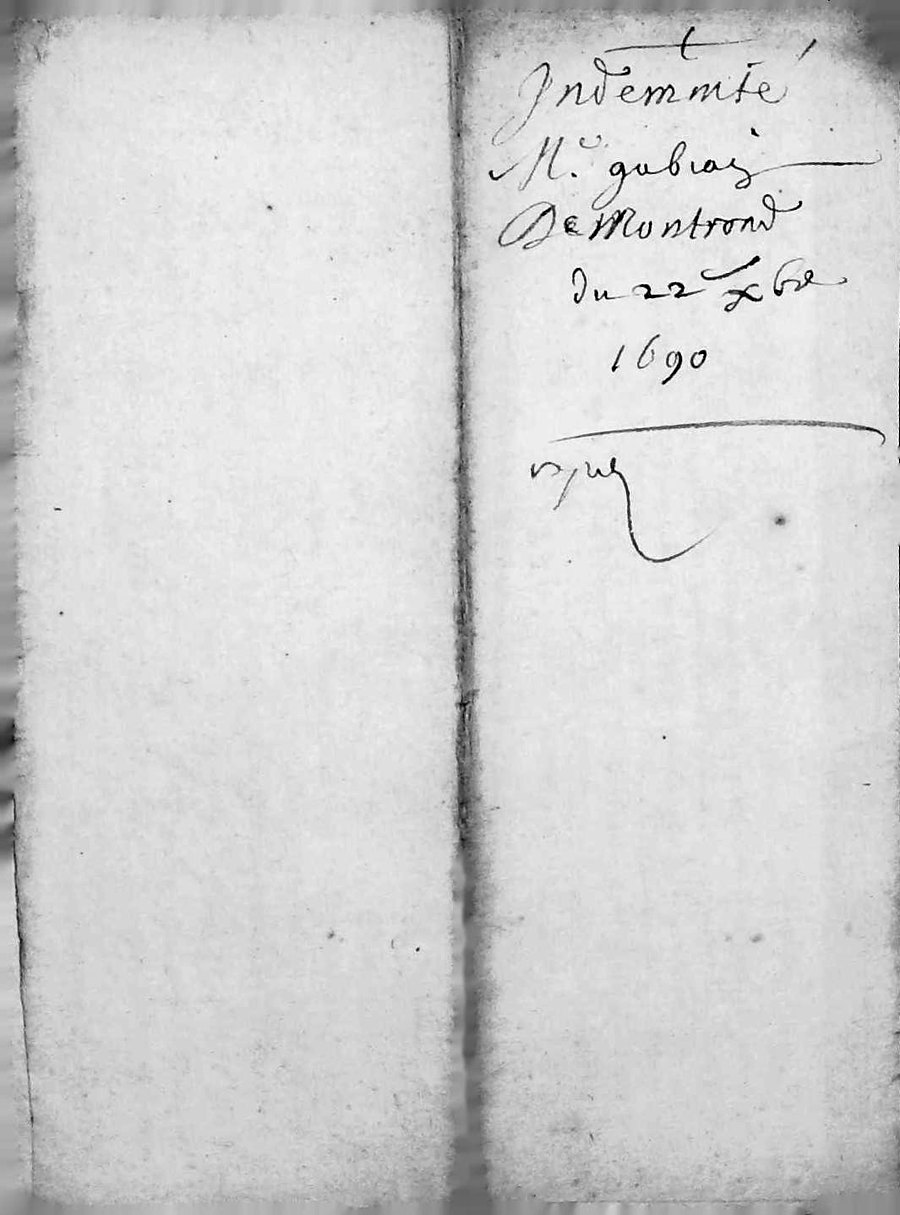 Indemnité
Mr. gabray
De Montrond
du 22 xbre
1690